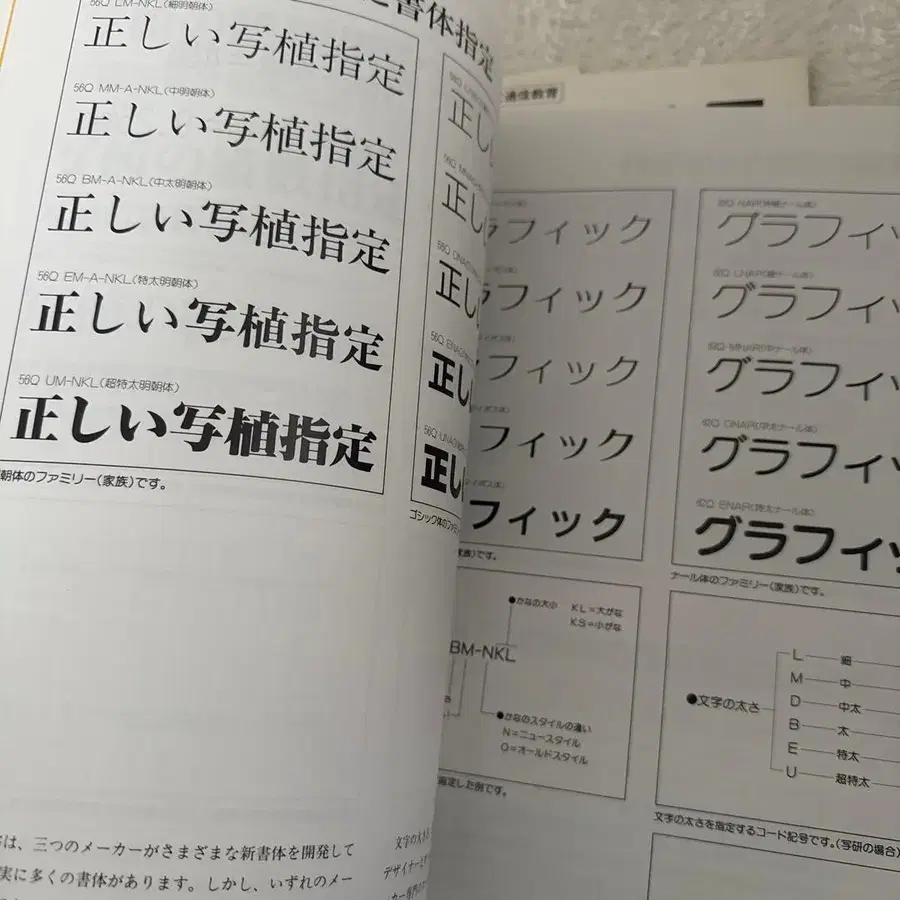 書体指定
56Q LM-NKL(細明朝体)
正しい写植指定
56Q MM-A-NKL(中明朝体)
正しい写植指定
56Q BM-A-NKL(中太明朝体)
正しい写植指定
56Q EM-A-NKL(特太明朝体)
正しい写植指定
56Q UM-NKL(超特太明朝体)
正しい写植指定
朝体のファミリー(家族)です。
は、三つのメーカーがさまざまな新書体を開発して
実に多くの書体があります。しかし、いずれのメー
正し
正し
正し
正し
正し
ゴシック体のファ
文字の大きさ
デザイナー
通信教育
ラフィック
ラフィック
フィック
フィック
フィック
家族)です。
●かなの大小 KL=大がな
KS=小がな
BM-NKL
●かなのスタイルの違い
N=ニュースタイル
O=オールドスタイル
指定した例です。
グラフィ
グラフィ
グラフィ
グラフィ
62Q ENAR(特太ナール体)
グラフィ
ナール体のファミリー(家族)です。
●文字の太さ
L 細
M 中
D 中太
B 太
E 特太
U 超特太
文字の太さを指定するコード記号です。(写研の場合)